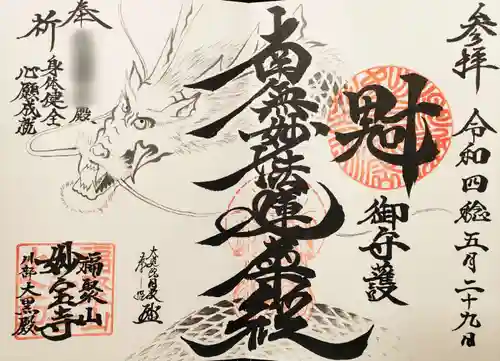 参拝 令和四稔五月二十九日
魁
御守護
南無妙法蓮華経
奉
祈
殿
身体健全
心願成就
福聚山
妙宝寺
大黒殿